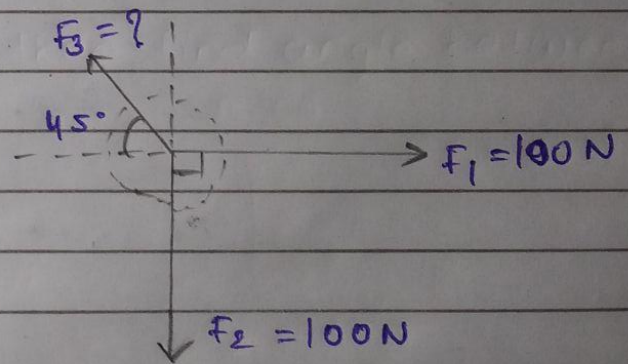 F3 = ?
45°
F1 = 100 N
F2 = 100N